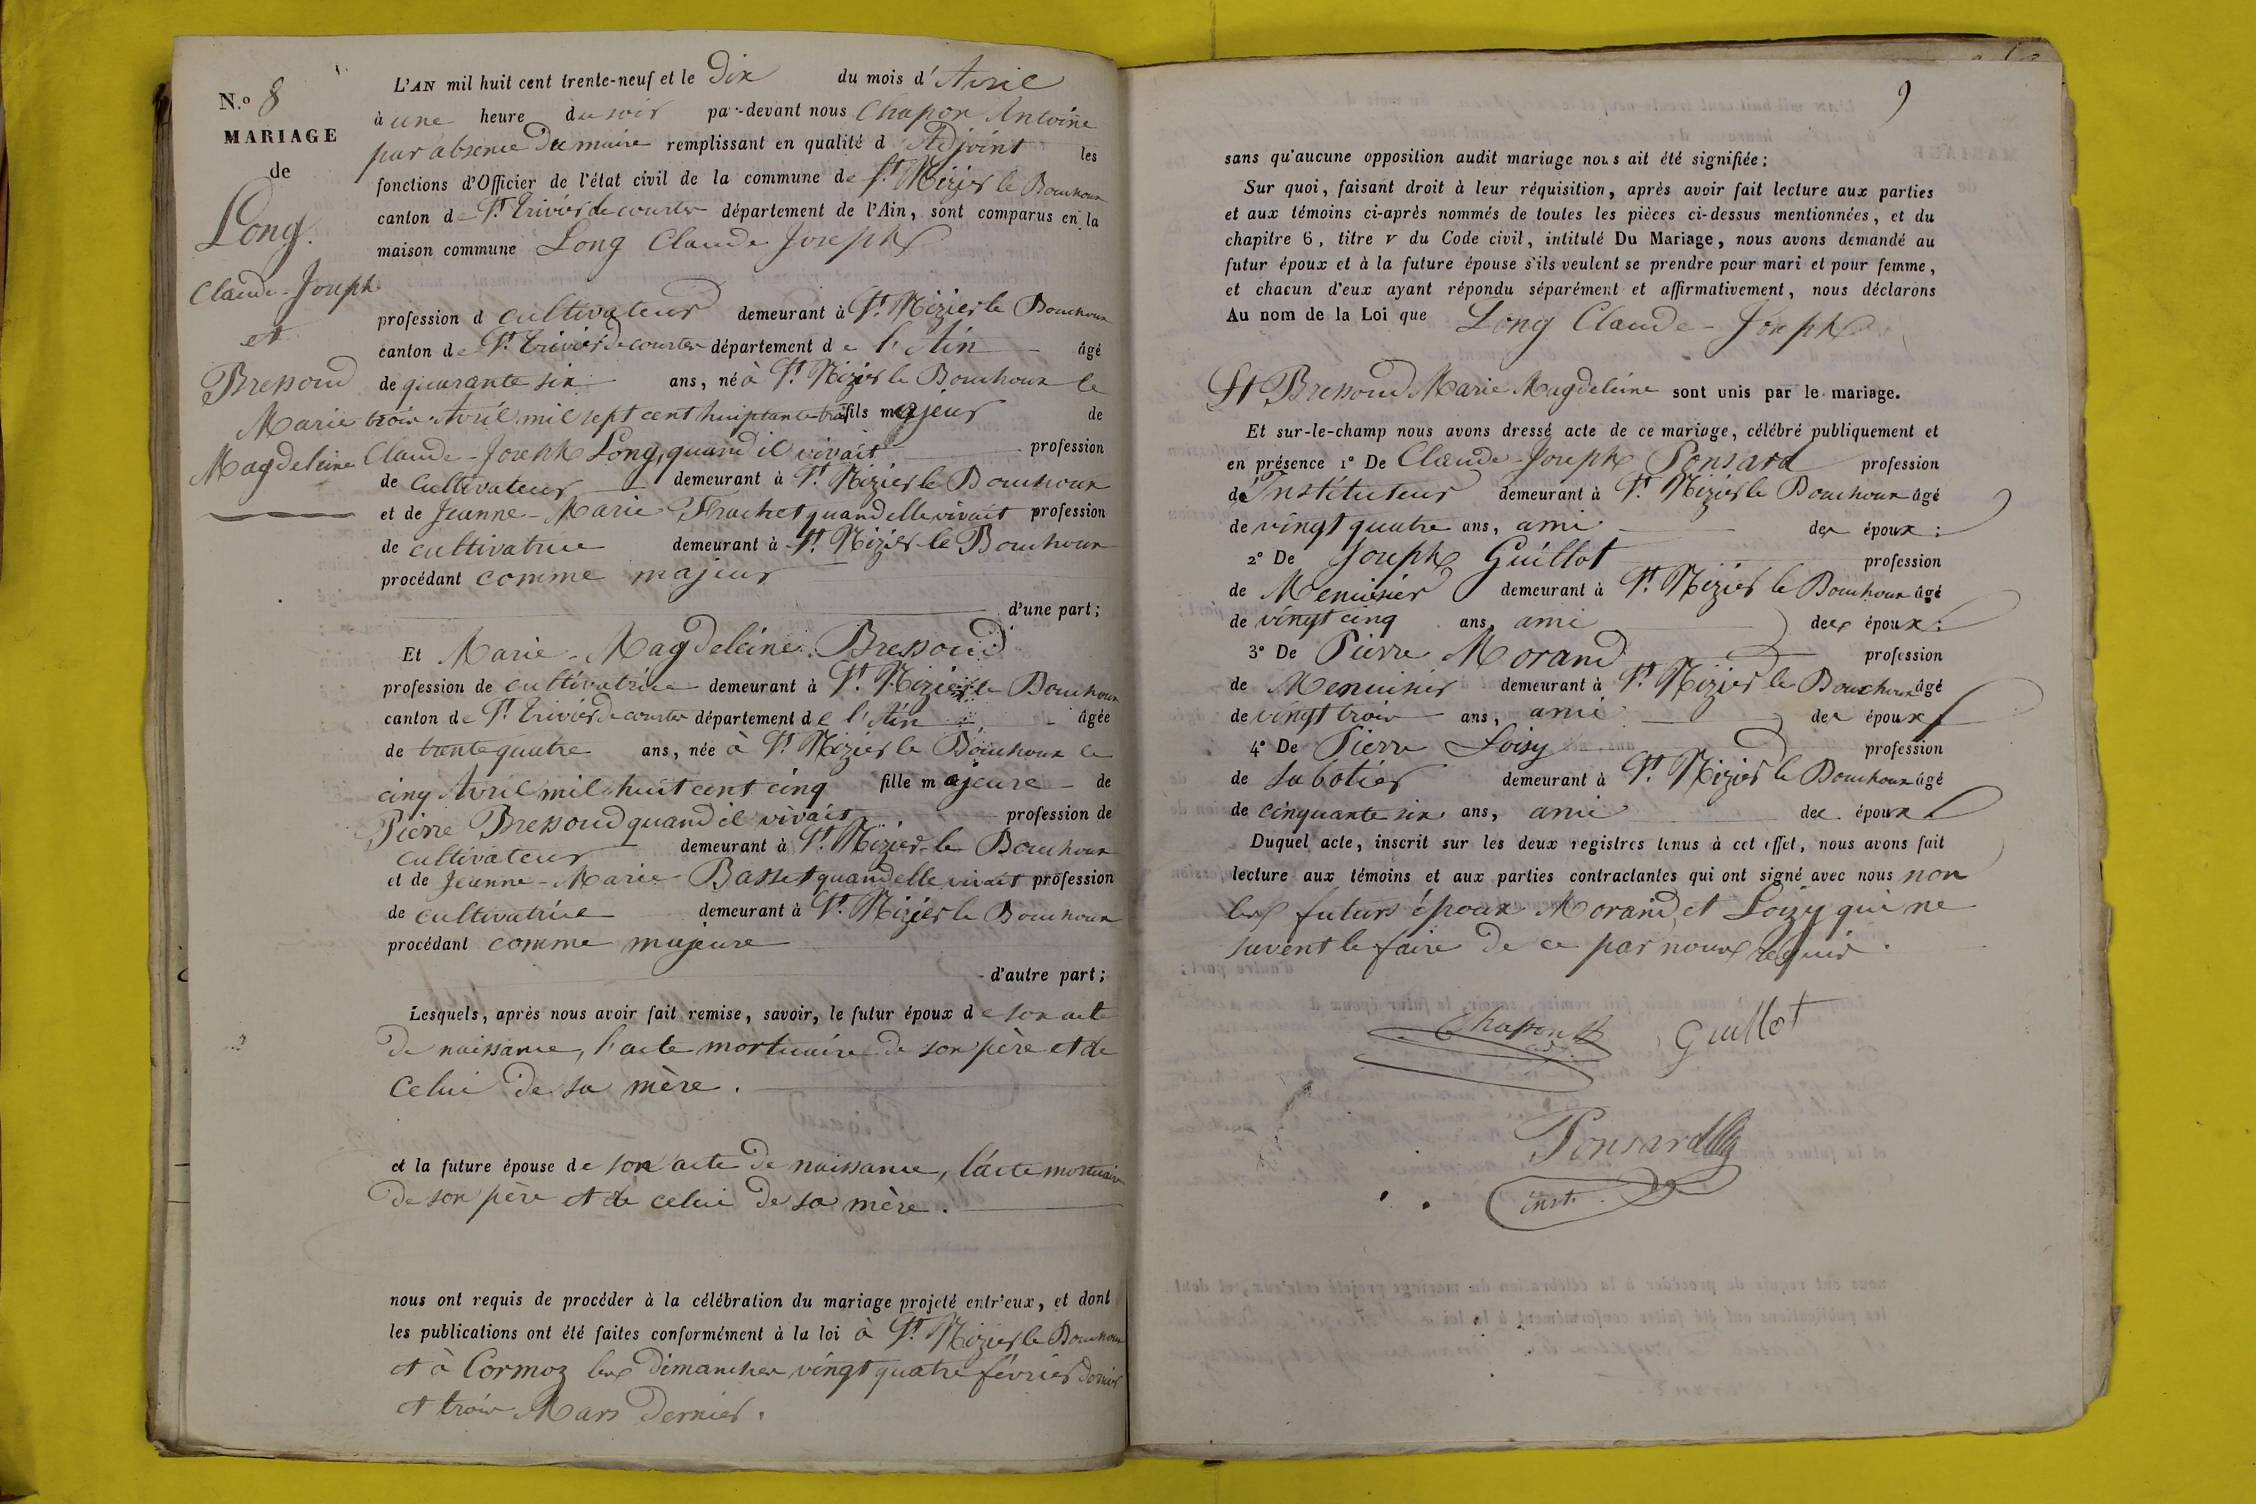 N.º 8
MARIAGE
de
Long.
Claude-Joseph
et
Bressoud
Marie
Magdeleine
L'AN mil huit cent trente-neuf et le Dix du mois d'Avril
à une heure du soir par-devant nous Chapon Antoine
par absence du maire remplissant en qualité d'Adjoint les
fonctions d'Officier de l'état civil de la commune de St. Nizier le Bouchoux
canton de St. Trivier de courtes département de l'Ain, sont comparus en la
maison commune Long Claude Joseph
profession d cultivateur demeurant à St. Nizier le Bouchoux
canton de St. Trivier de courtes département de l'Ain âgé
de quarante six ans, né à St. Nizier le Bouchoux le
trois Avril mil sept cent huiptante trois fils majeur de
Claude-Joseph Long, quand il vivait profession
de cultivateur demeurant à St. Nizier le Bouchoux
et de Jeanne-Marie Frachet quand elle vivait profession
de cultivatrice demeurant à St. Nizier le Bouchoux
procédant comme majeur
d'une part;
Et Marie-Magdeleine Bressoud
profession de cultivatrice demeurant à St. Nizier le Bouchoux
canton de St. Trivier de courtes département de l'Ain âgée
de trente quatre ans, née à St. Nizier le Bouchoux le
cinq Avril mil huit cent cinq fille majeure de
Pierre Bressoud quand il vivait profession de
cultivateur demeurant à St. Nizier le Bouchoux
et de Jeanne-Marie Basset quand elle vivait profession
de cultivatrice demeurant à St. Nizier le Bouchoux
procédant comme majeure
d'autre part;
Lesquels, après nous avoir fait remise, savoir, le futur époux de son acte
de naissance, l'acte mortuaire de son père et de
celui de sa mère.
et la future épouse de son acte de naissance, l'acte mortuaire
de son père et de celui de sa mère.
nous ont requis de procéder à la célébration du mariage projeté entr'eux, et dont
les publications ont été faites conformément à la loi à St. Nizier le Bouchoux
et à Cormoz les Dimanches vingt quatre février dernier
et trois Mars dernier.
9
sans qu'aucune opposition audit mariage nous ait été signifiée;
Sur quoi, faisant droit à leur réquisition, après avoir fait lecture aux parties
et aux témoins ci-après nommés de toutes les pièces ci-dessus mentionnées, et du
chapitre 6, titre v du Code civil, intitulé Du Mariage, nous avons demandé au
futur époux et à la future épouse s'ils veulent se prendre pour mari et pour femme,
et chacun d'eux ayant répondu séparément et affirmativement, nous déclarons
Au nom de la Loi que Long Claude-Joseph
Et Bressoud Marie Magdeleine sont unis par le mariage.
Et sur-le-champ nous avons dressé acte de ce mariage, célébré publiquement et
en présence 1º De Claude-Joseph Ponsard profession
de Instituteur demeurant à St. Nizier le Bouchoux âgé
de vingt quatre ans, ami des époux;
2º De Joseph Guillot profession
de Menuisier demeurant à St. Nizier le Bouchoux âgé
de vingt cinq ans, ami des époux;
3º De Pierre Morand profession
de Menuisier demeurant à St. Nizier le Bouchoux âgé
de vingt trois ans, ami des époux
4º De Pierre Loisy profession
de sabotier demeurant à St. Nizier le Bouchoux âgé
de cinquante six ans, ami des époux
Duquel acte, inscrit sur les deux registres tenus à cet effet, nous avons fait
lecture aux témoins et aux parties contractantes qui ont signé avec nous non
les futurs époux Morand et Loizy qui ne
savent le faire de ce par nous requis.
Chapon
Guillot
Ponsard
inst.